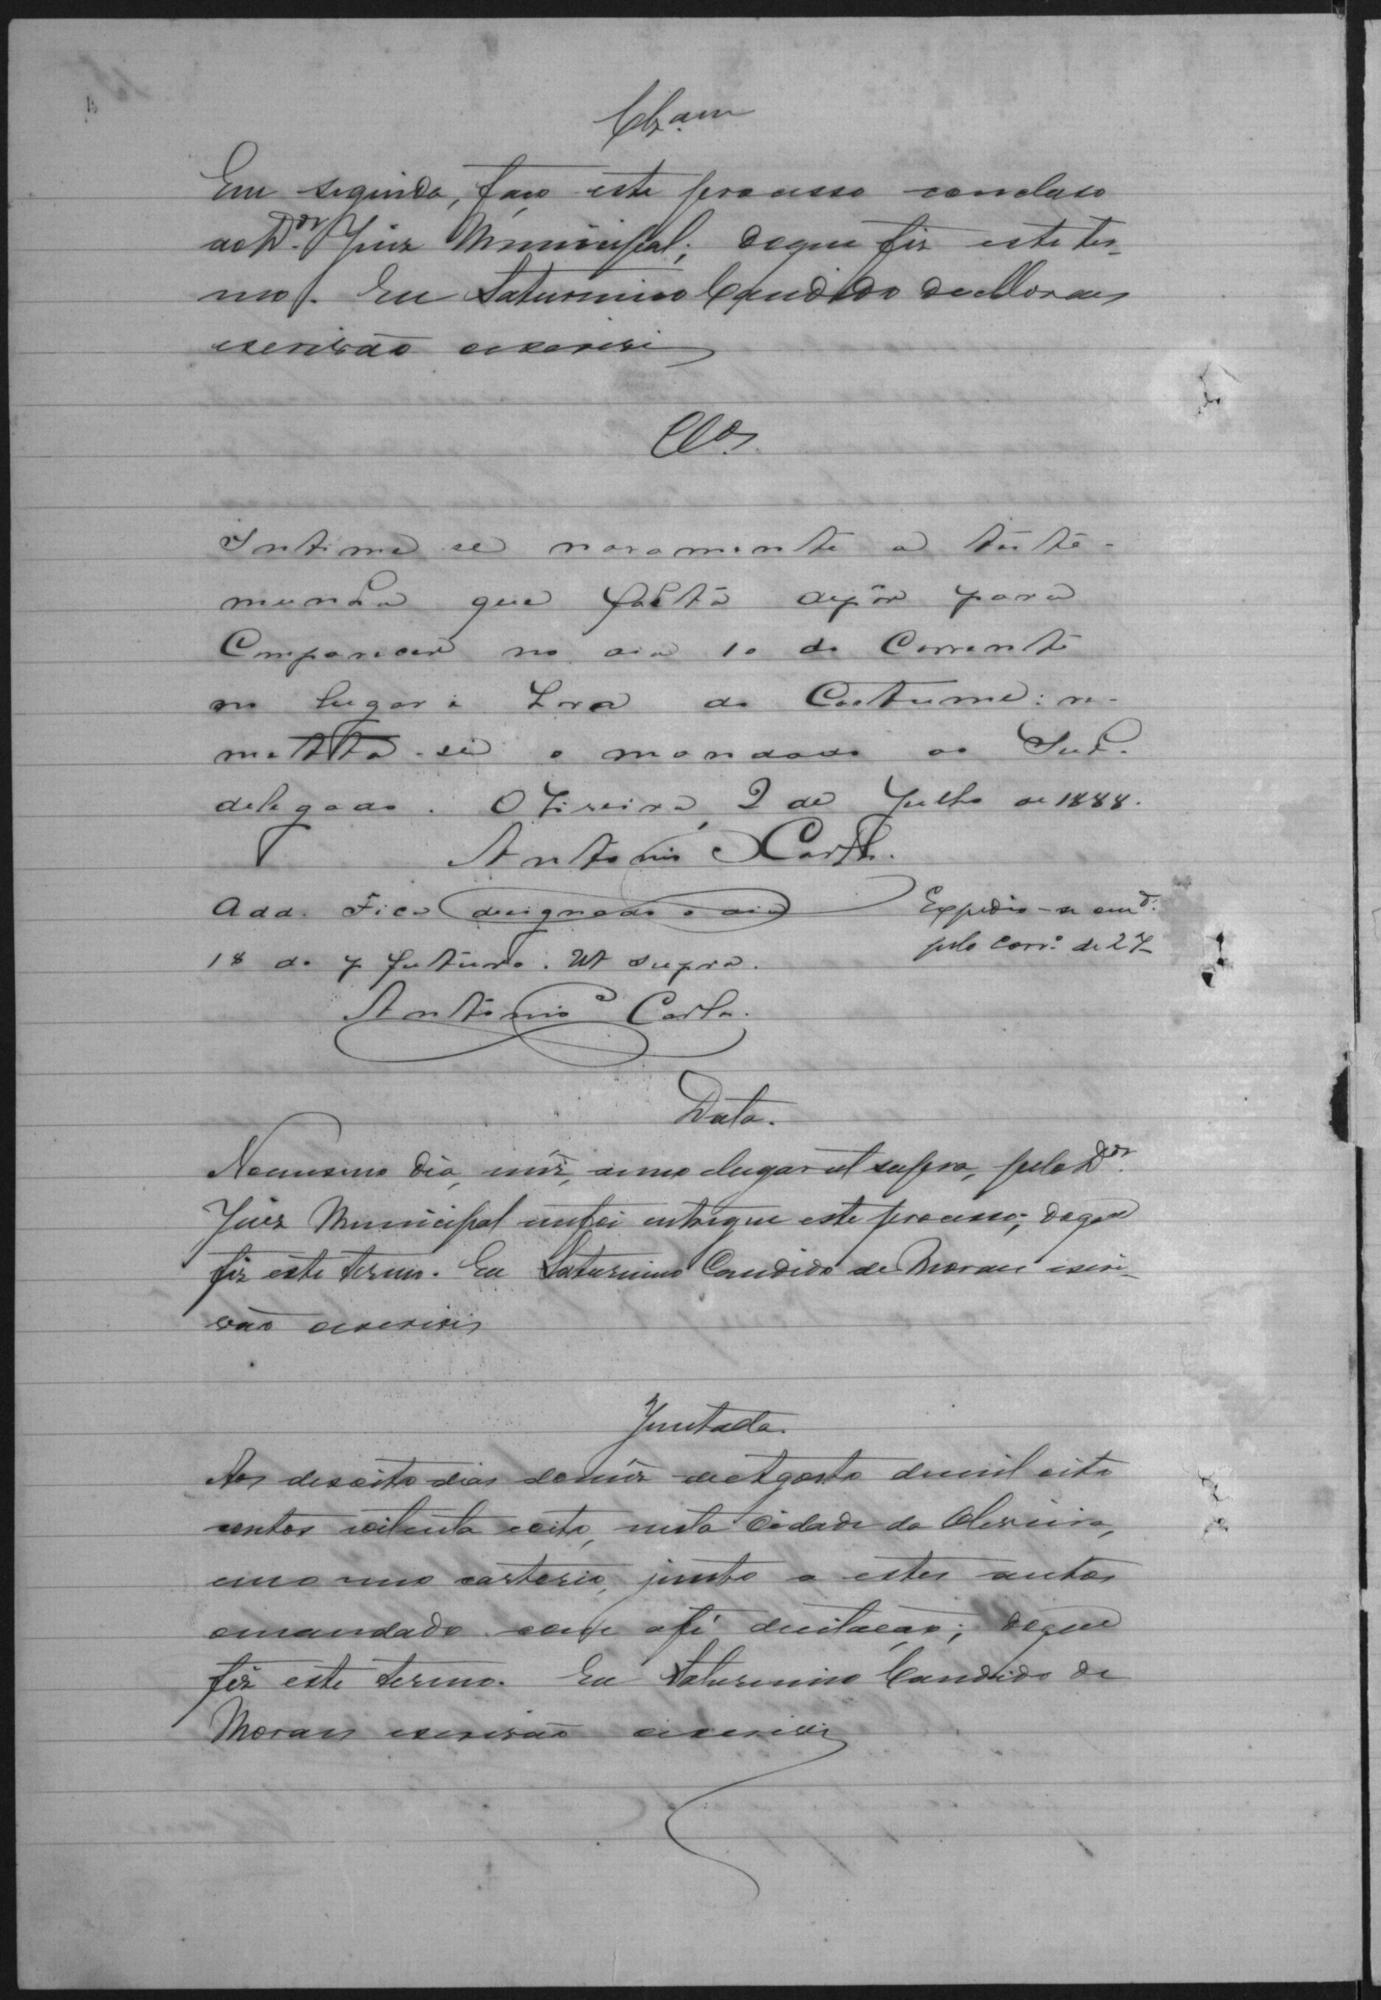 Clz.am
Em seguida, faço este processo concluso
ao Dor Juiz Municipal; do que fiz este ter-
mo. Eu Saturnino Candido de Moraes
escrivão o escrevi
Clos.
Intime se novamente a téste-
munha que falta depôr para
Comparecer no dia 10 do Corrente
no lugar e hora do Costume: re-
metta-se o mandado ao Sub-
delegado. Oliveira, 2 de Julho de 1888.
Antonio Carlos.
Add. Fica designado o dia
18 do 7 futuro. Ut supra.
Antonio Carlos.
Expedio-se mand.o
pelo corr.o de 27
Data.
No mesmo dia, mêz, anno e lugar ut supra, pelo Dor
Juiz Municipal me foi entregue este processo; do que
fiz este termo. Eu Saturnino Candido de Moraes escri-
vão o escrevi
Juntada.
Aos desoito dias do mêz de Agosto de mil oito
centos oitenta e oito, nesta Cidade da Oliveira,
em o meo cartorio, junto a estes autos
o mandado com a fé de citação; do que
fiz este termo. Eu Saturnino Candido de
Moraes escrivão o escrevi